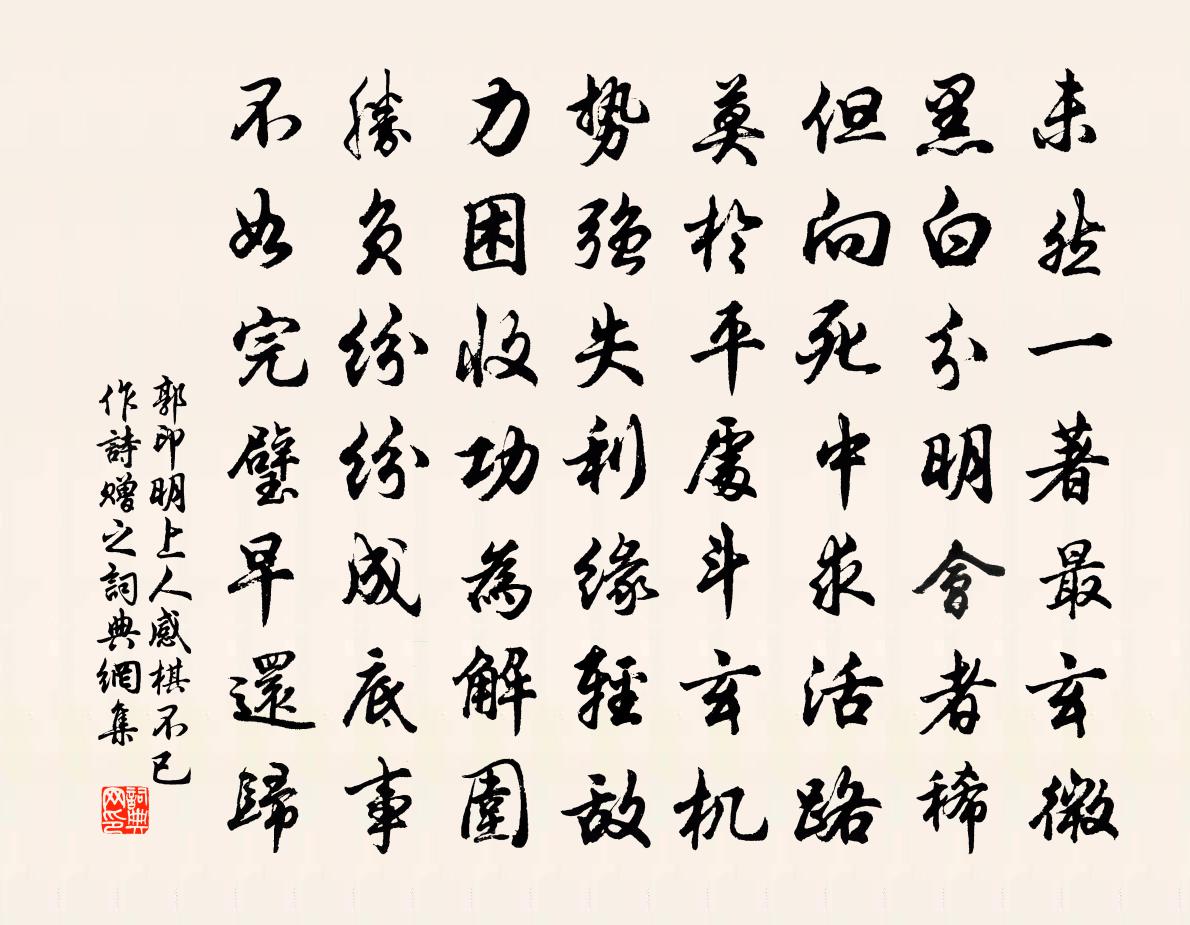 未然一著最玄微
黑白分明會者稀
但向死中求活路
莫於平處斗玄机
勢強失利緣輕敌
力困收功為解圍
勝負紛紛成底事
不如完璧早還歸
郭印明上人感棋不已
作詩贈之詞典網集
詞典
网印